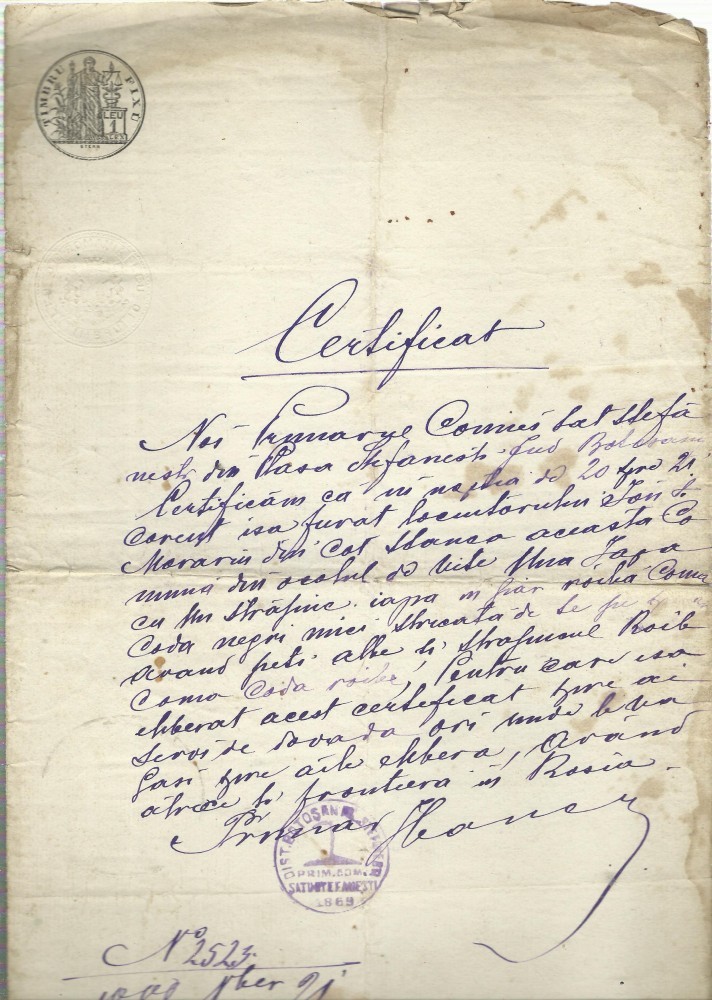 TIMBRU FIXU
LEU
1
STERN
Certificat
Noi Primarul Comunei Sat Stefă
nesti din Plasa Stefanesti Jud Botosani
Certificăm că in noptia de 20 spre 21
Corent isa furat locuitorului Ion
Morariu din Cot Stanca aceasta Co
mună din ocolul de Vite Una Iapa
cu Un Străjinc iapa roibă Coma
Coda negri mici de
avand peti albe si Roib
como Coda roibe, Pentru care isa
eliberat acest certeficat spre ai
Servi de dovada ori unde le va
Gasi spre aile elibera, avănd
atrece si frontiera in Rosia
Primar
DIST. BOTOSANI
PRIM. COM.
SATU STEFANESTI
1869
No 2523